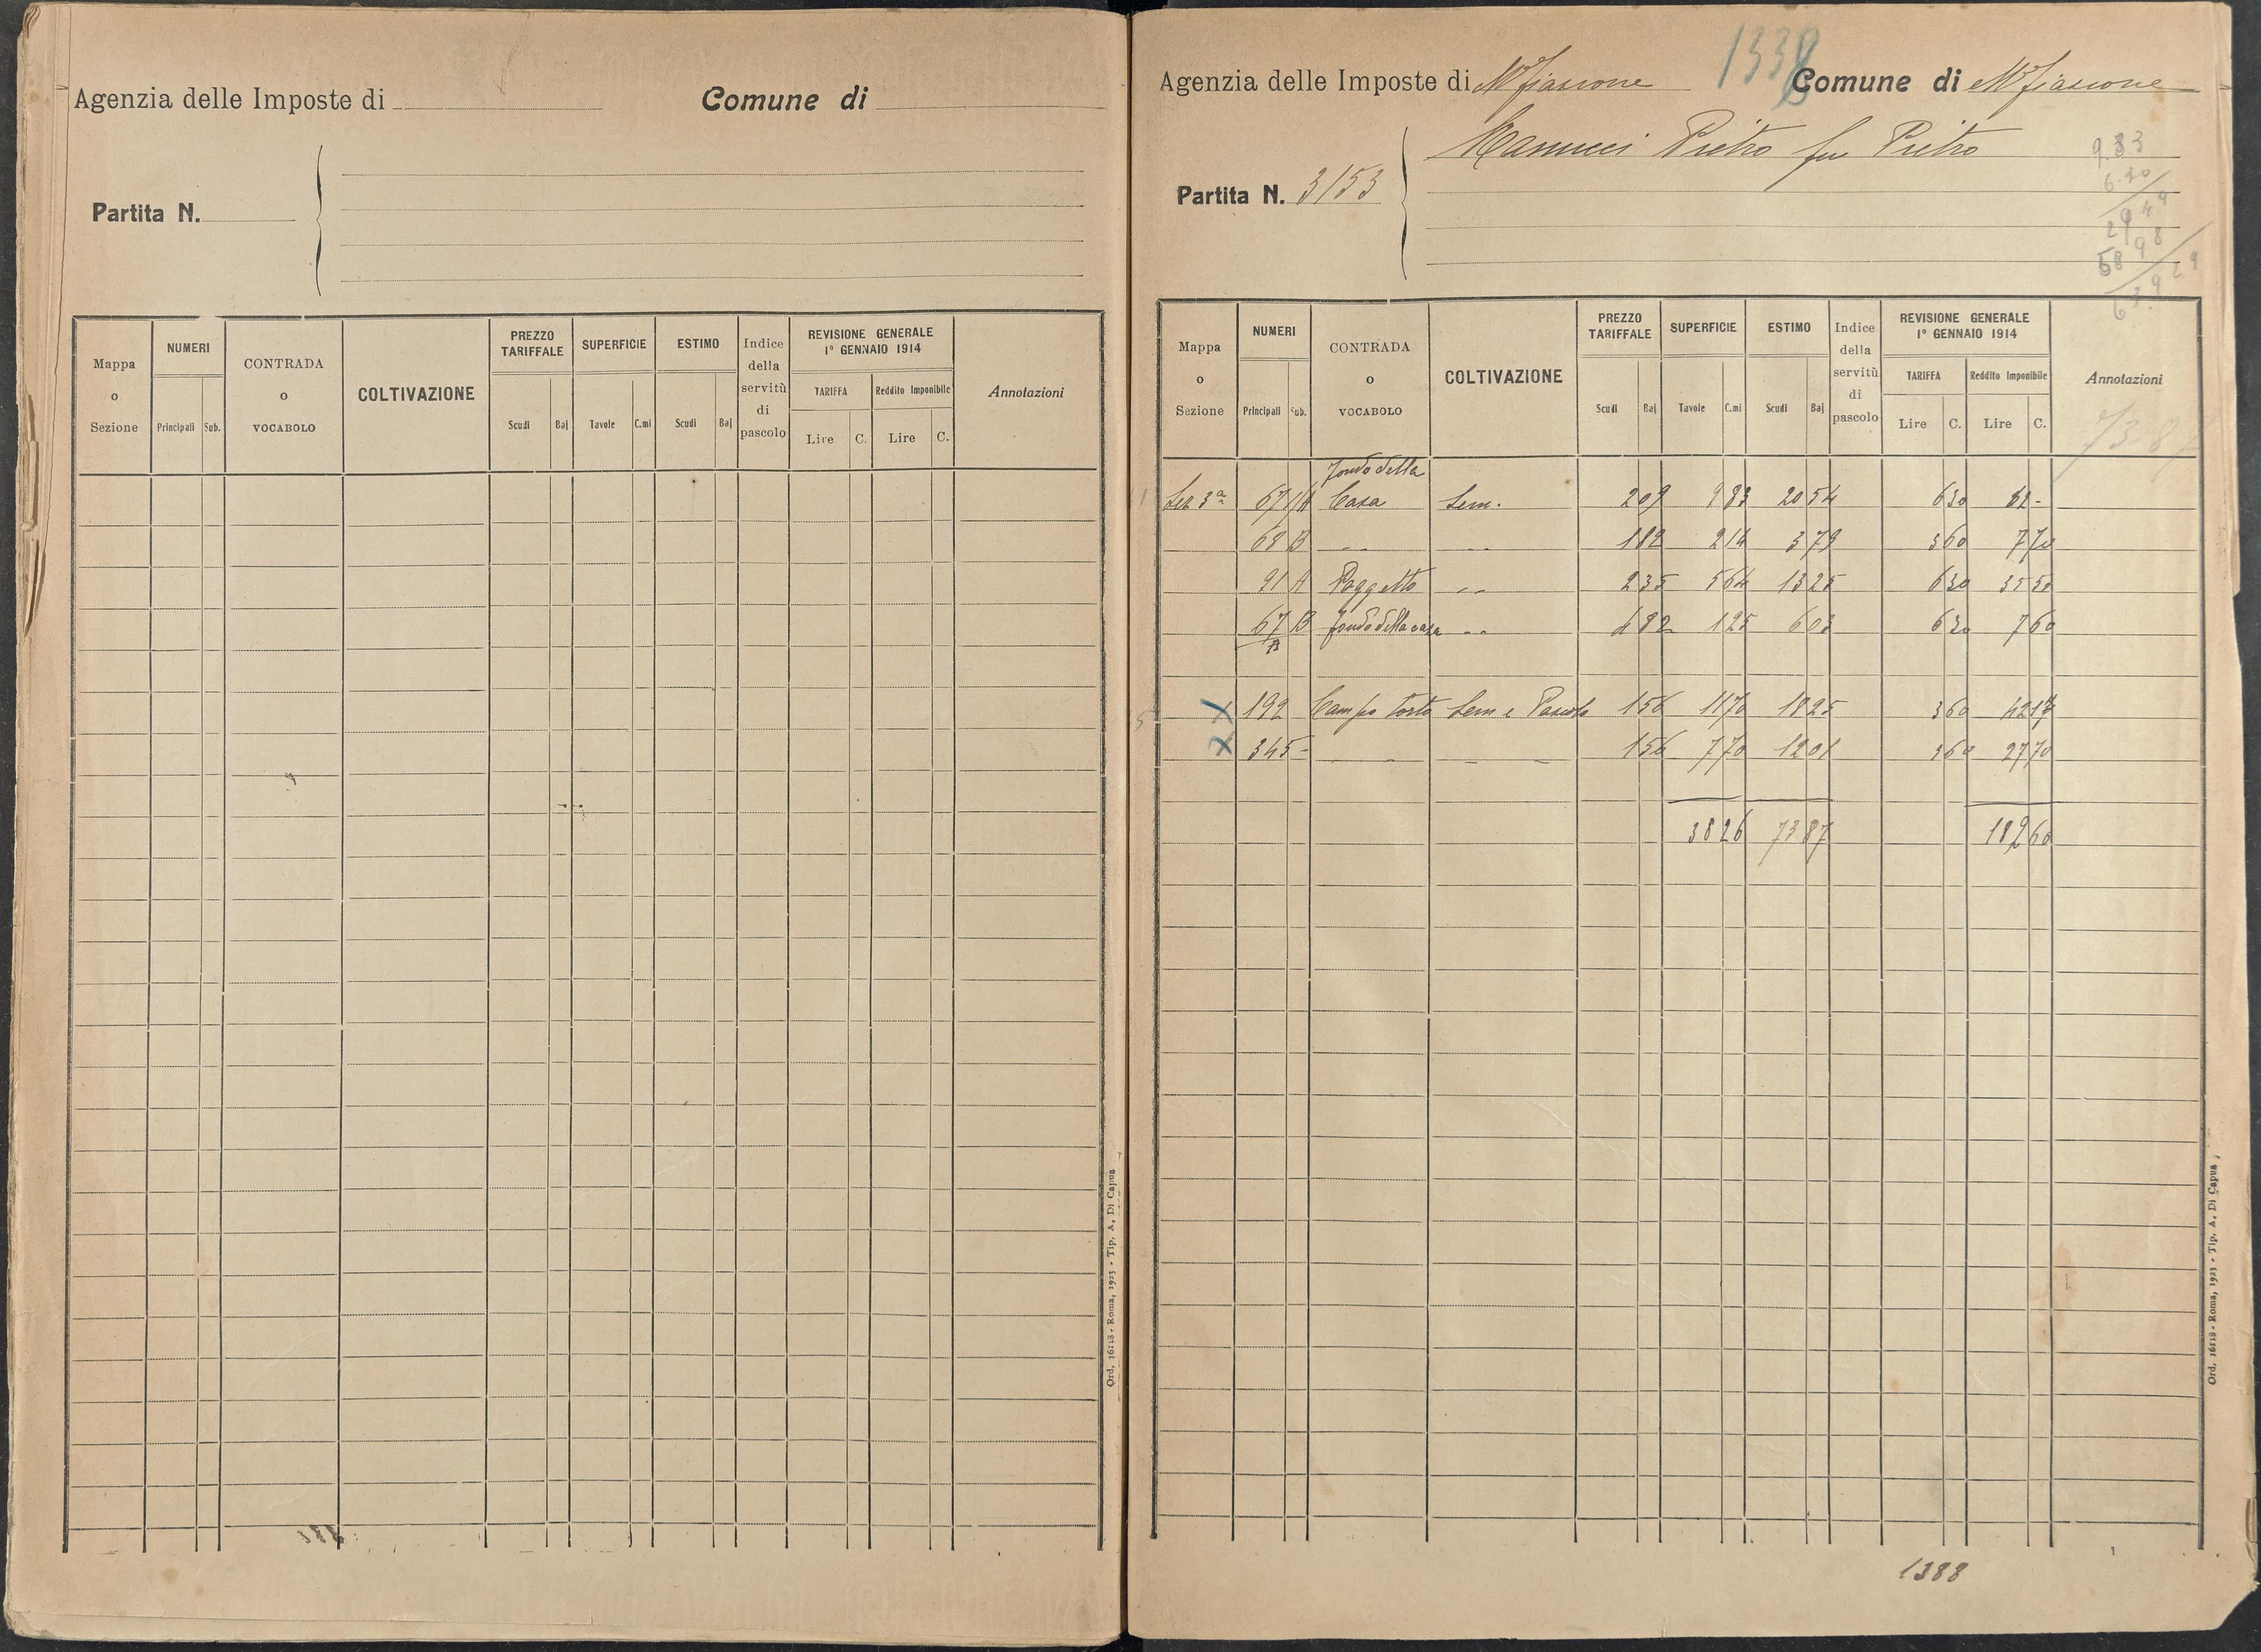 Agenzia delle Imposte di
Comune di
Partita N.
Mappa o Sezione
NUMERI
Principali Sub.
CONTRADA o VOCABOLO
COLTIVAZIONE
PREZZO TARIFFALE
Scudi Baj
SUPERFICIE
Tavole C.mi
ESTIMO
Scudi Baj
Indice della servitù di pascolo
REVISIONE GENERALE 1° GENNAIO 1914
TARIFFA
Lire C.
Reddito Imponibile
Lire C.
Annotazioni
Ord. 16118 - Roma, 1923 - Tip. A. Di Capua
1338
Agenzia delle Imposte di Mfiascone Comune di Mfiascone
Manucci Pietro fu Pietro
Partita N. 3153
9.83
6.30
2949
5898
Mappa o Sezione
NUMERI
Principali Sub.
CONTRADA o VOCABOLO
COLTIVAZIONE
PREZZO TARIFFALE
Scudi Baj
SUPERFICIE
Tavole C.mi
ESTIMO
Scudi Baj
Indice della servitù di pascolo
REVISIONE GENERALE 1° GENNAIO 1914
TARIFFA
Lire C.
Reddito Imponibile
Lire C.
Annotazioni
73 87
fondo della
Sez 3ª 67 1/A Casa Sem. 2 09 9 83 20 54 6 30 62 -
68 B " " 1 82 2 14 3 79 3 60 7 70
91 A Poggetto " 2 35 5 64 13 25 6 30 35 50
67 B fondo della casa " 4 82 1 25 6 03 6 30 7 60
B
X 192 Campo torto Sem e Pascolo 1 56 11 70 18 25 3 60 42 12
X 345 - - - 1 56 7 70 12 01 3 60 27 70
38 26 73 87 182 60
Ord. 16118 - Roma, 1923 - Tip. A. Di Capua
1388